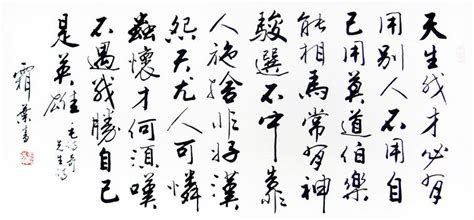 天生我才必有
用別人不用自
己用莫道伯樂
能相馬常有神
駿選不中靠
人施捨非好漢
怨天尤人可憐
蟲懷才何須嘆
不遇戰勝自己
是英雄
先生詩
霜葉書